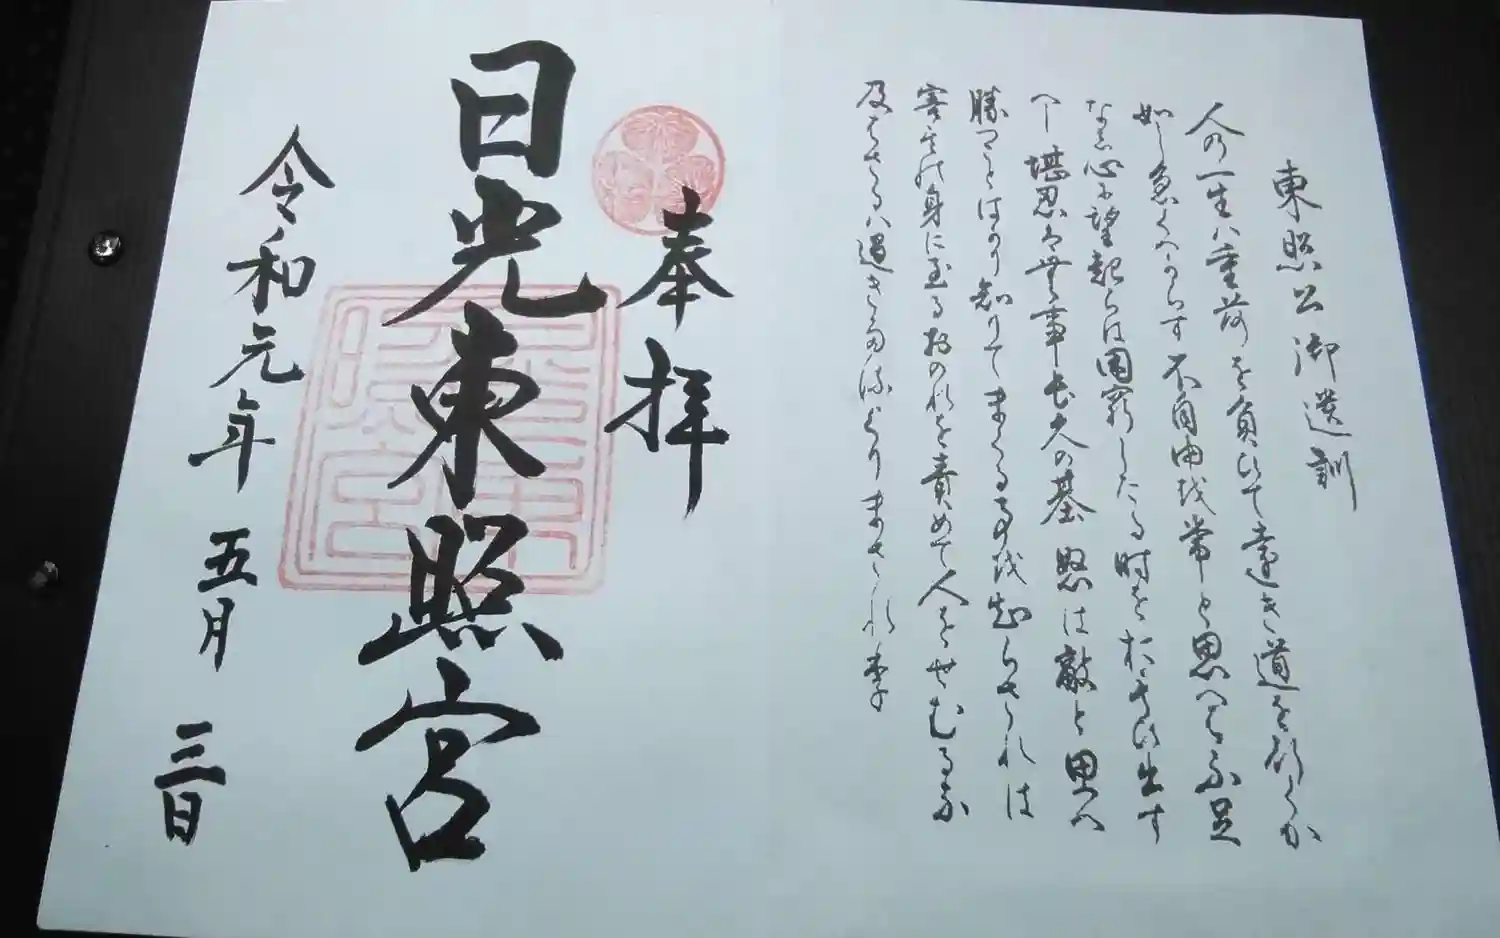 東照公御遺訓
人の一生ハ重荷を負ひて遠き道を行くか
如し急くへからす不自由を常と思へは不足
なし心に望起らは困窮したる時をおもひ出す
へし堪忍は無事長久の基怒は敵と思へ
勝つことはかり知りてまくる事を知らされは
害其の身に至るおのれを責めて人をせむるな
及はさるハ過きたるよりまされり
奉拝
日光東照宮
令和元年五月三日